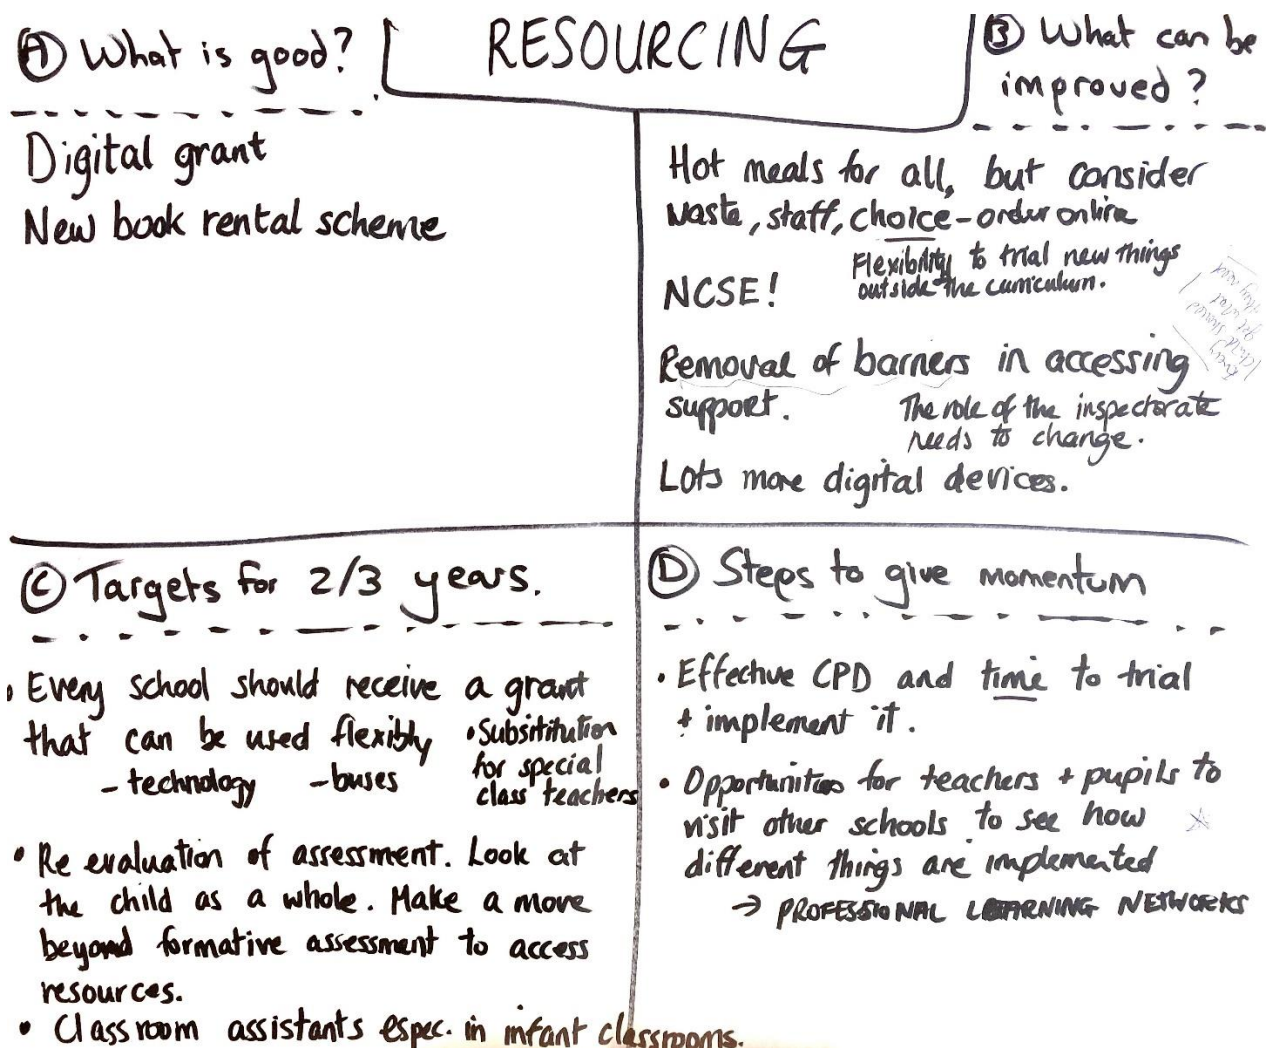 RESOURCING
Ⓐ What is good?
Digital grant
New book rental scheme
Ⓑ What can be
improved?
Hot meals for all, but consider
waste, staff, choice - order online
Flexibility to trial new things
outside the curriculum.
NCSE!
Every
child should
get what
they need
Removal of barriers in accessing
support.
The role of the inspectorate
needs to change.
Lots more digital devices.
Ⓒ Targets for 2/3 years.
• Every school should receive a grant
that can be used flexibly
- technology - buses
• Subsititution
for special
class teachers
• Re evaluation of assessment. Look at
the child as a whole. Make a move
beyond formative assessment to access
resources.
• Classroom assistants espec. in infant classrooms.
Ⓓ Steps to give momentum
• Effective CPD and time to trial
+ implement it.
• Opportunities for teachers + pupils to
visit other schools to see how
different things are implemented
→ PROFESSIONAL LEARNING NETWORKS